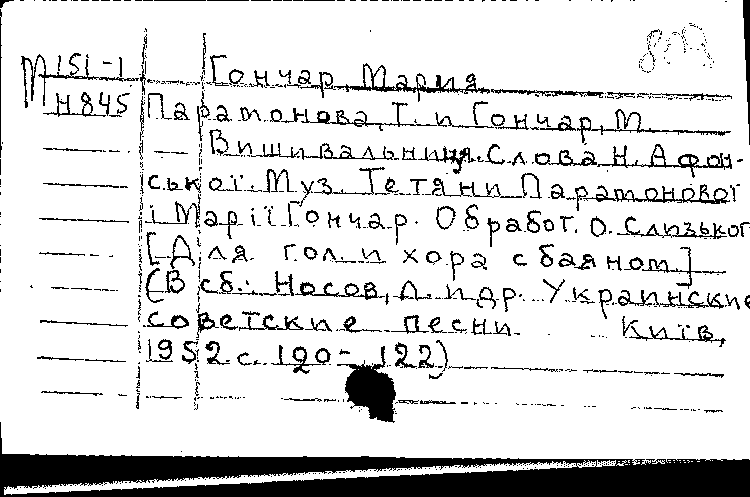 М 151-1 Гончар, Мария
Н845 Парамонова, Т. и Гончар, М.
Вишивальниця. Слова Н. Афон-
ської. Муз. Тетяни Парамонової
і Марії Гончар. Обработ. О. Слизького
[Для гол. и хора с баяном.]
(В сб.: Носов, Л. и др. Украинские
советские песни. Київ,
1952 с. 120-122)